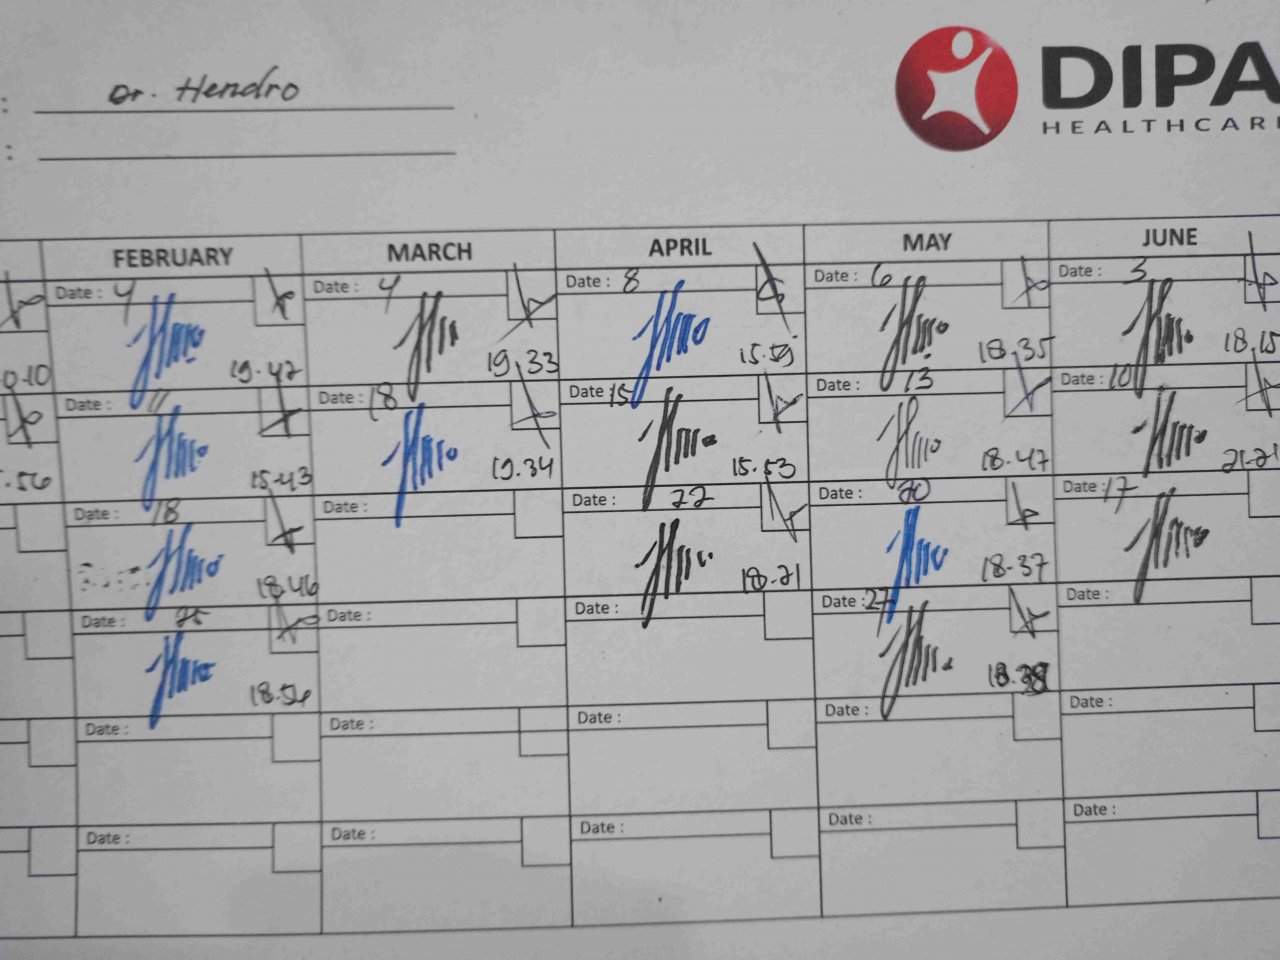 : Dr. Hendro
:
DIPA
HEALTHCARE
FEBRUARY MARCH APRIL MAY JUNE
Date : 4 Date : 4 Date : 8 Date : 6 Date : 3
19.47 19.33 15.59 18.35 18.15
Date : 11 Date : 18 Date 15 Date : 13 Date : 10
15.43 19.34 15.53 18.47 21.21
Date : 18 Date : Date : 22 Date : 20 Date : 17
18.46 18.21 18.37
Date : 25 Date : Date : Date : 27 Date :
18.54 18.38
Date : Date : Date : Date : Date :
Date : Date : Date : Date : Date :